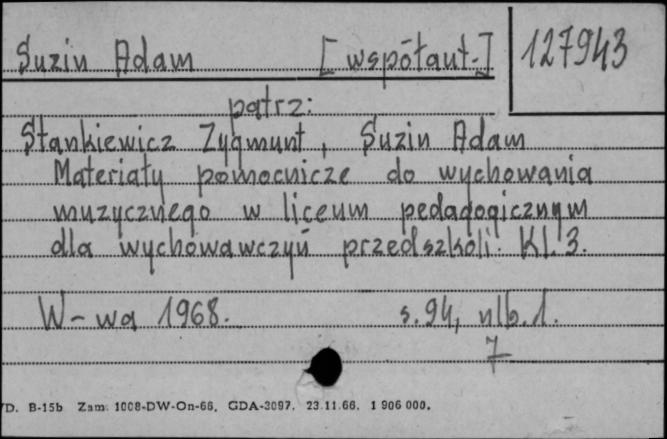 Suzin Adam [współaut.] 127943
patrz:
Stankiewicz Zygmunt, Suzin Adam
Materiały pomocnicze do wychowania
muzycznego w liceum pedagogicznym
dla wychowawczyń przedszkoli. Kl. 3.
W-wa 1968. s. 94, nlb. 1.
7
D. B-15b Zam. 1008-DW-On-66. GDA-3097. 23.11.66. 1 906 000.